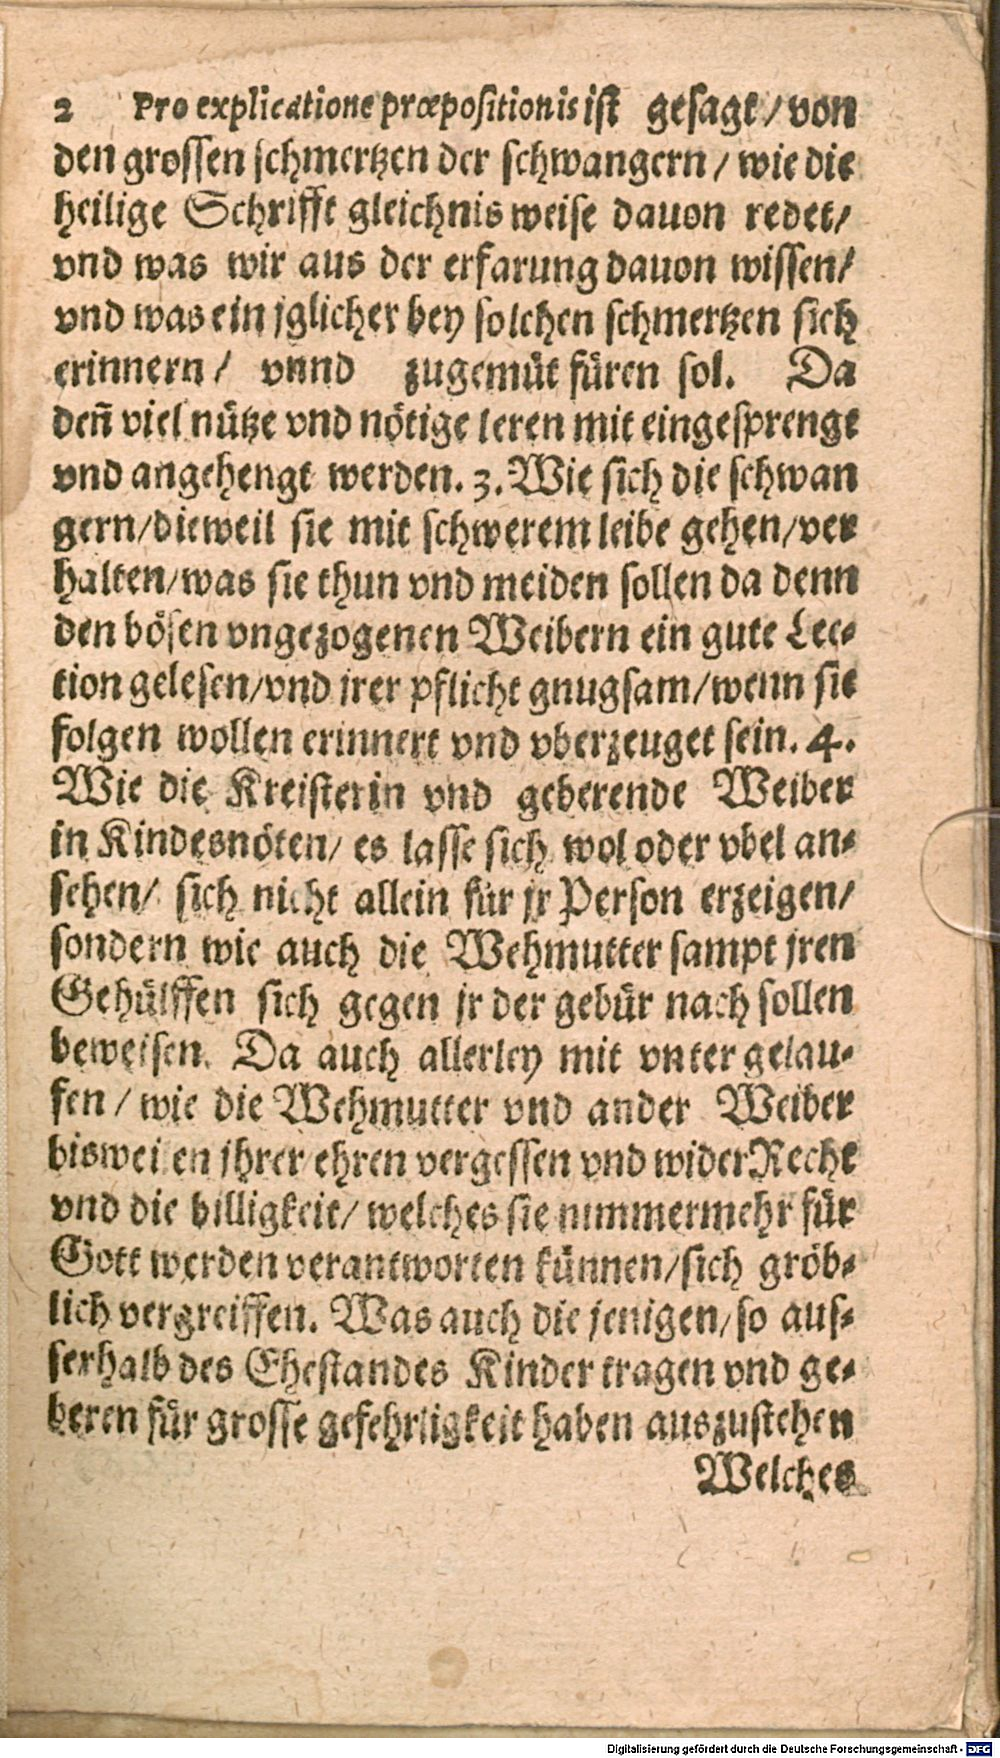 2 Pro explicatione præpositionis ist gesagt/ von
den grossen schmertzen der schwangern/ wie die
heilige Schrifft gleichnis weise dauon redet/
vnd was wir aus der erfarung dauon wissen/
vnd was ein jglicher bey solchen schmertzen sich
erinnern/ vnnd zugemüt füren sol. Da
deñ viel nütze vnd nötige leren mit eingesprengt
vnd angehengt werden. 3. Wie sich die schwan
gern/dieweil sie mit schwerem leibe gehen/ver
halten/was sie thun vnd meiden sollen da denn
den bösen vngezogenen Weibern ein gute Lec-
tion gelesen/vnd jrer pflicht gnugsam/wenn sie
folgen wollen erinnert vnd vberzeuget sein. 4.
Wie die Kreisterin vnd geberende Weiber
in Kindesnöten/ es lasse sich wol oder vbel an-
sehen/ sich nicht allein für jr Person erzeigen/
sondern wie auch die Wehmutter sampt jren
Gehülffen sich gegen jr der gebür nach sollen
beweisen. Da auch allerley mit vnter gelau-
fen/ wie die Wehmutter vnd ander Weiber
bisweilen jhrer ehren vergessen vnd wider Recht
vnd die billigkeit/ welches sie nimmermehr für
Gott werden verantworten künnen/sich gröb-
lich vergreiffen. Was auch die jenigen/so aus-
serhalb des Ehestandes Kinder tragen vnd ge-
beren für grosse gefehrligkeit haben auszustehen
Welches
Digitalisierung gefördert durch die Deutsche Forschungsgemeinschaft - DFG